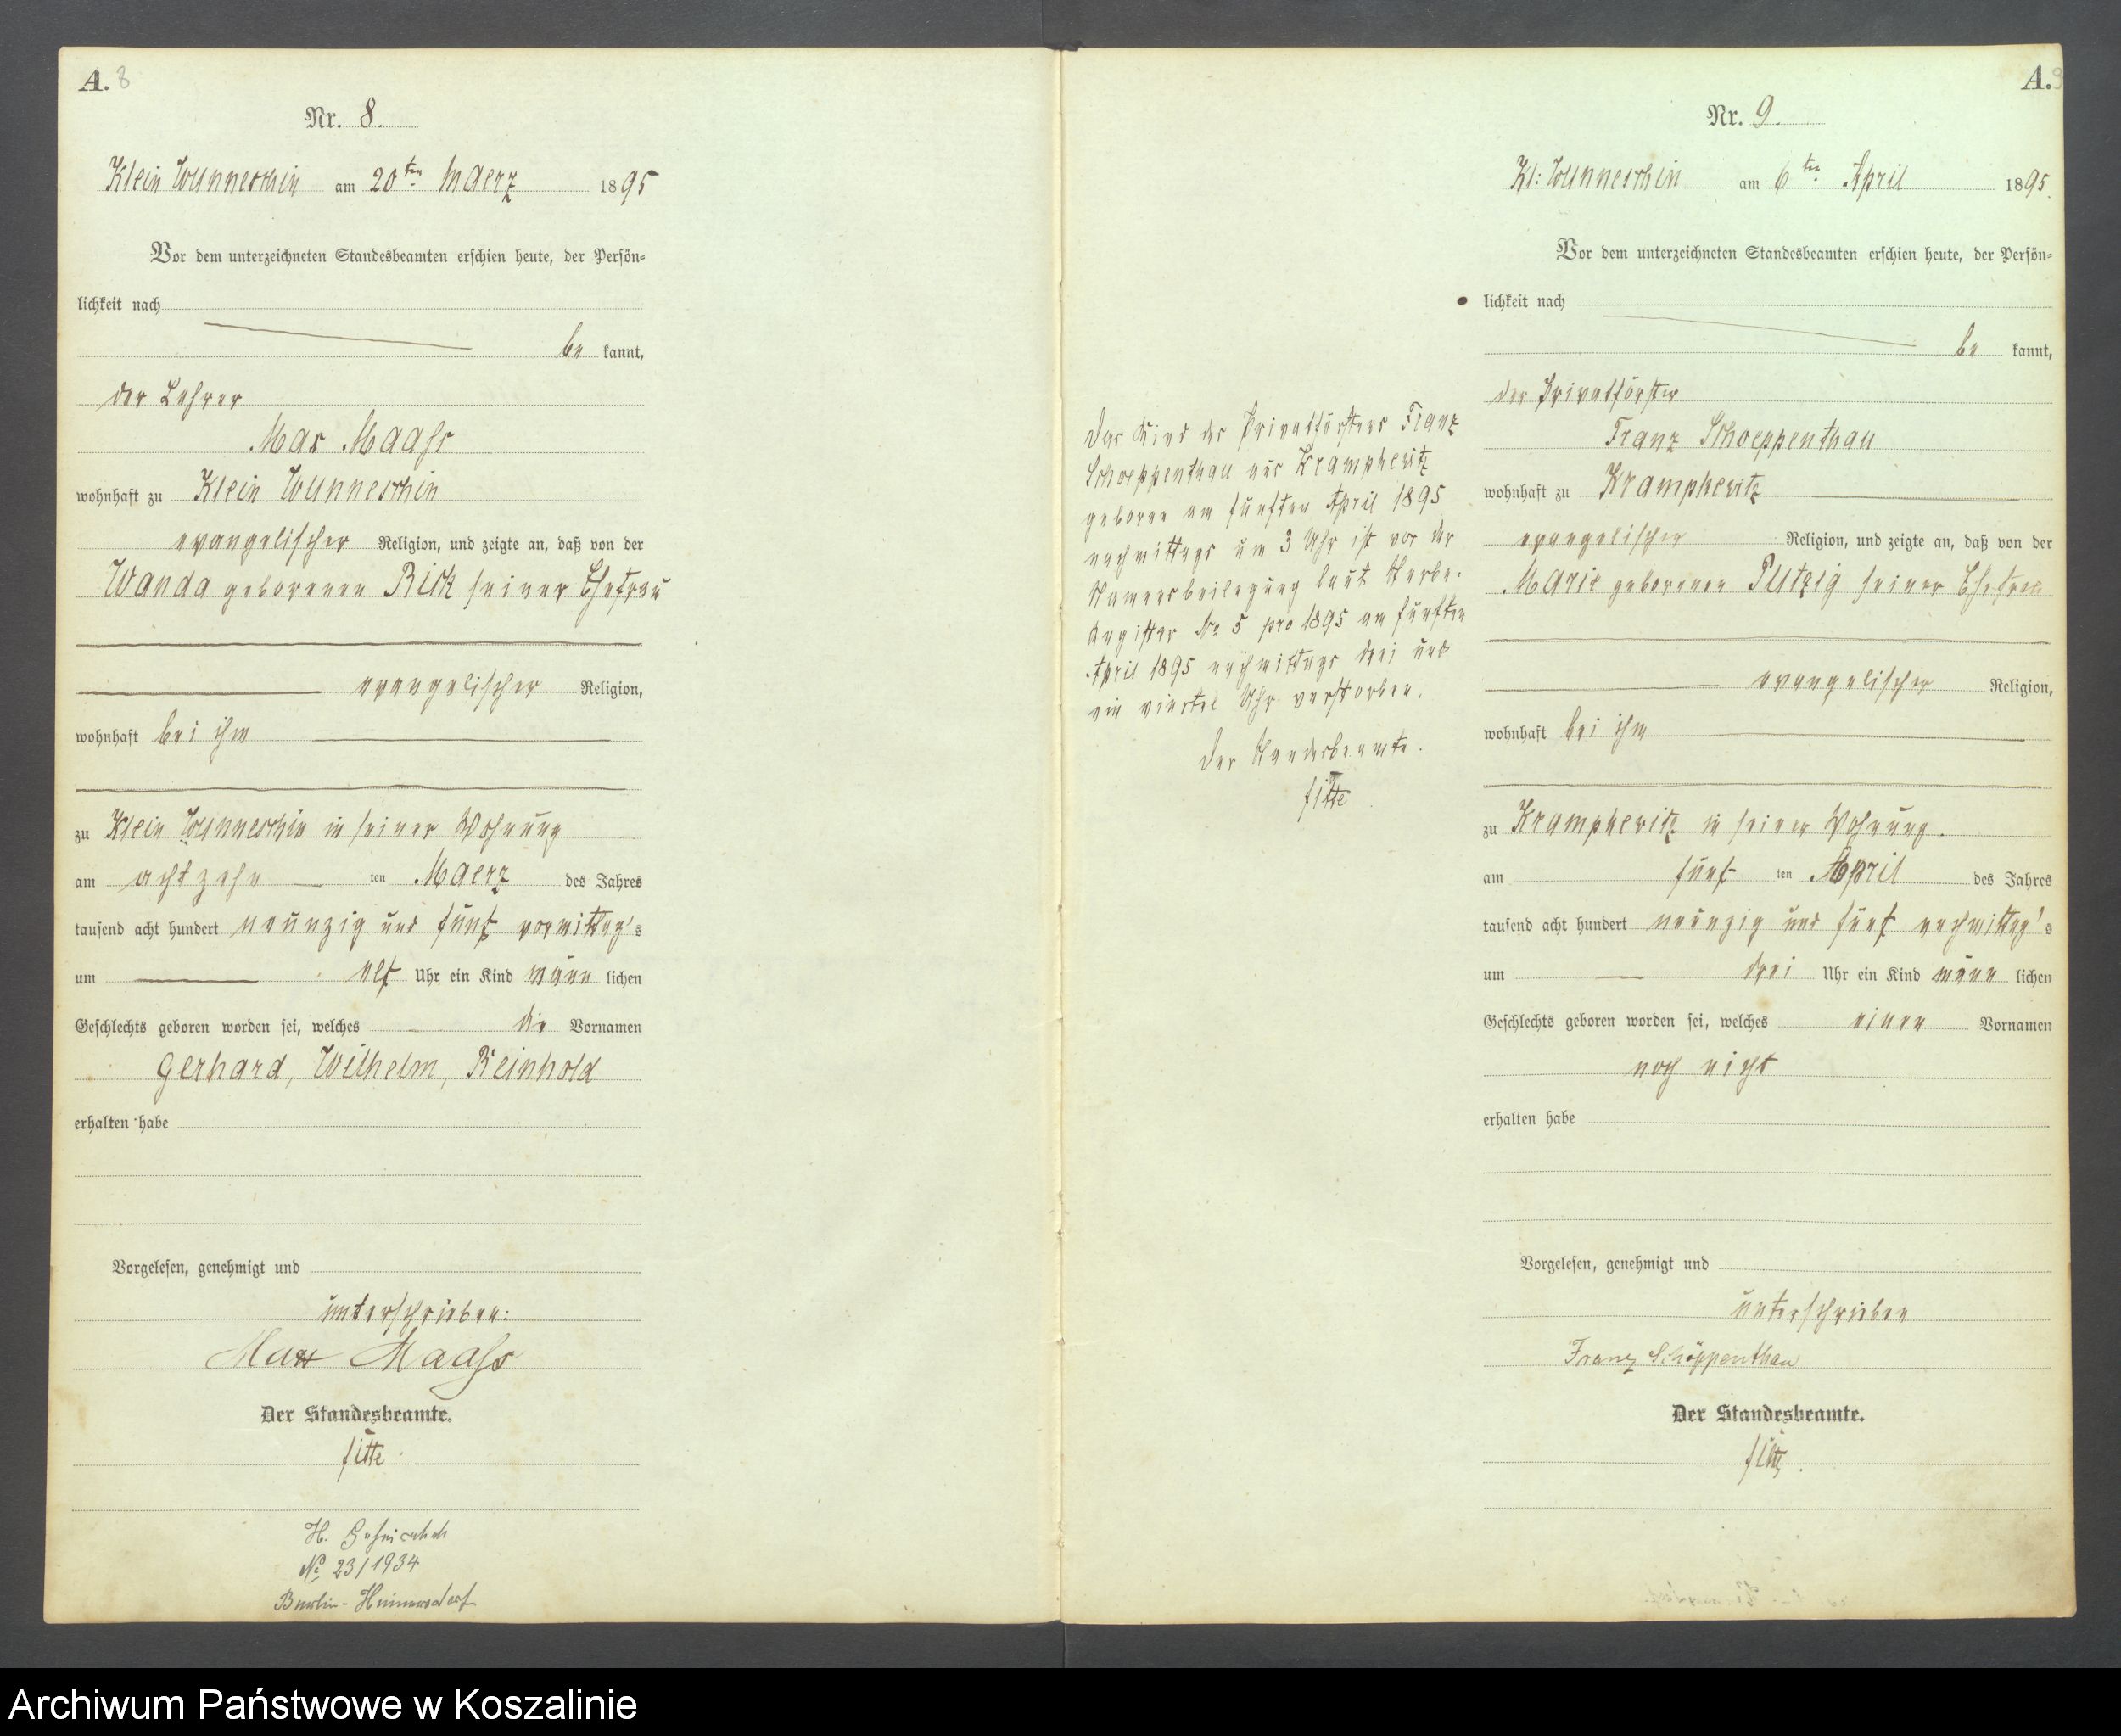 A. 8
Nr. 8.
Klein Wunneschin am 20ten Maerz 1895
Vor dem unterzeichneten Standesbeamten erschien heute, der Persön-
lichkeit nach
be kannt,
der Lehrer
Max Maass
wohnhaft zu Klein Wunneschin
evangelischer Religion, und zeigte an, daß von der
Wanda geborenen Rick seiner Ehefrau
evangelischer Religion,
wohnhaft bei ihm
zu Klein Wunneschin in seiner Wohnung
am achtzehn ten Maerz des Jahres
tausend acht hundert neunzig und fünf vormittag's
um elf Uhr ein Kind männ lichen
Geschlechts geboren worden sei, welches die Vornamen
Gerhard, Wilhelm, Reinhold
erhalten habe
Vorgelesen, genehmigt und
unterschrieben:
Max Maass
Der Standesbeamte.
H.
No 23/1934
Berlin-
Das Kind des Privatförsters Franz
Schoeppenthau aus Krampkewitz
geboren am fünften April 1895
nachmittags um 3 Uhr ist vor der
Namensbeilegung laut Sterbe-
Register No 5 pro 1895 am fünften
April 1895 nachmittags drei und
ein viertel Uhr verstorben.
Der Standesbeamte.
A. 9
Nr. 9.
Kl: Wunneschin am 6ten April 1895.
Vor dem unterzeichneten Standesbeamten erschien heute, der Persön-
lichkeit nach
be kannt,
der Privatförster
Franz Schoeppenthau
wohnhaft zu Krampkewitz
evangelischer Religion, und zeigte an, daß von der
Marie geborenen Putzig seiner Ehefrau
evangelischer Religion,
wohnhaft bei ihm
zu Krampkewitz in seiner Wohnung.
am fünf ten April des Jahres
tausend acht hundert neunzig und fünf nachmittag's
um drei Uhr ein Kind männ lichen
Geschlechts geboren worden sei, welches einen Vornamen
noch nicht
erhalten habe
Vorgelesen, genehmigt und
unterschrieben
Franz Schöppenthau
Der Standesbeamte.
Archiwum Państwowe w Koszalinie